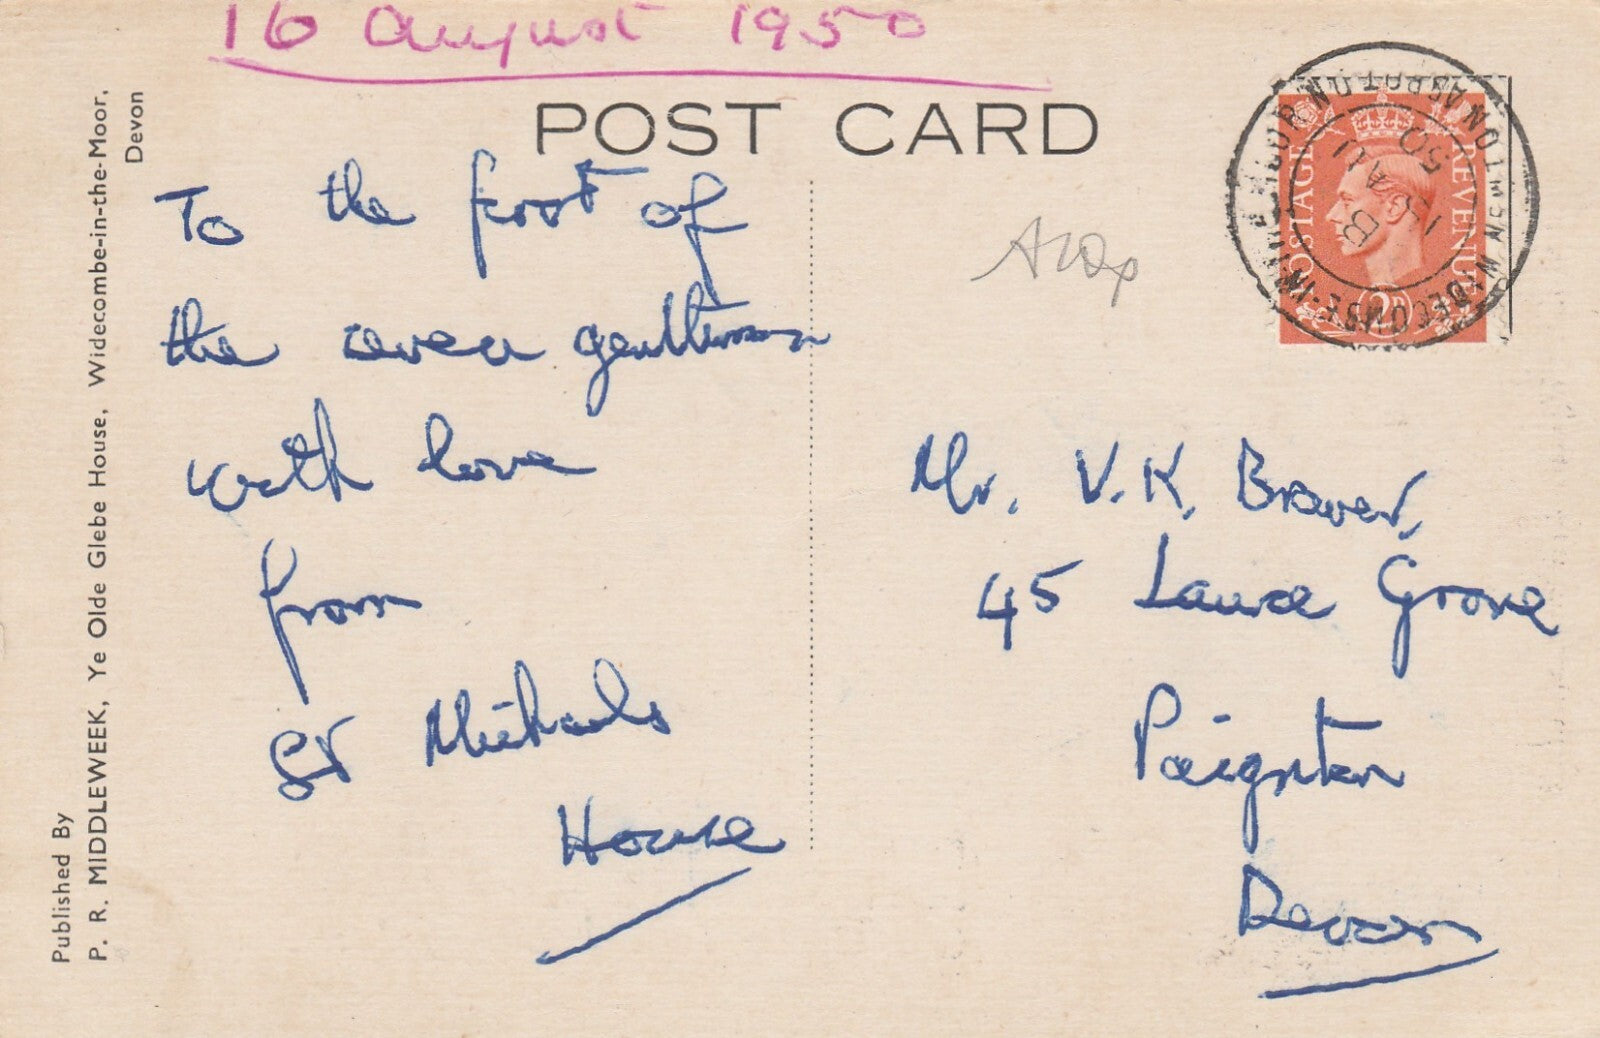 16 August 1950
POST CARD
To the foot of
the seven gentleman
with love
from
St Michaels
House
Mr. V.K. Brewer,
45 Laura Grove
Paignton
Devon
Published By
P. R. MIDDLEWEEK, Ye Olde Glebe House, Widecombe-in-the-Moor,
Devon
POSTAGE
REVENUE
2D
WIDECOMBE-IN-THE-MOOR
NEWTON ABBOT
B
AU
50